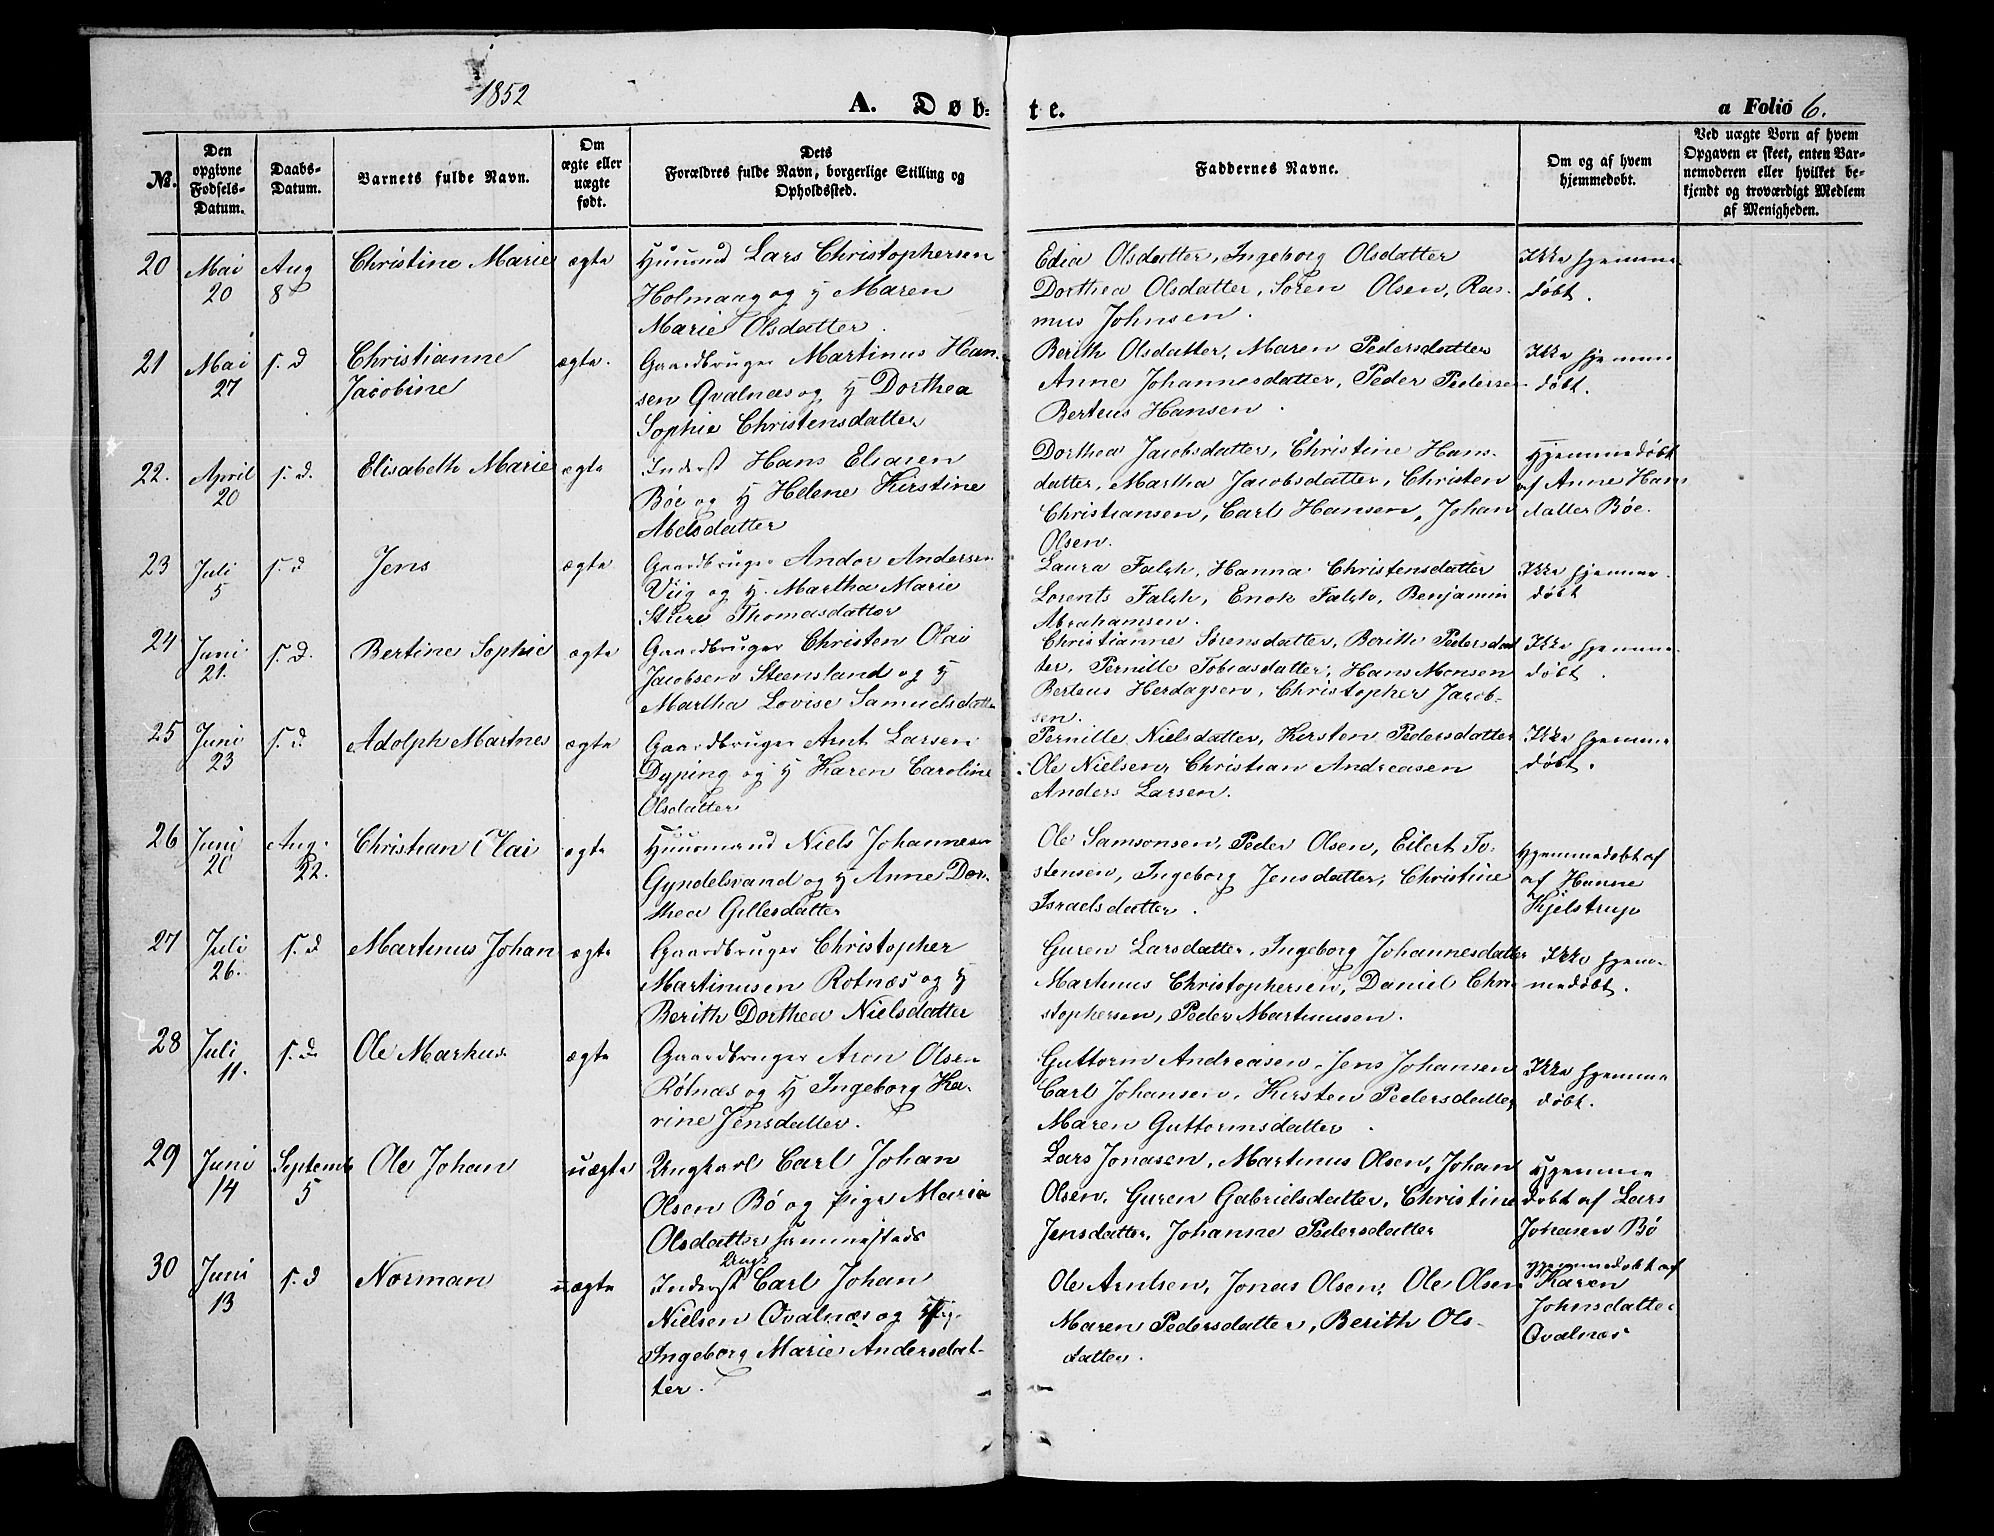 1852
A. Døb= te.
a Folio 6.
No.
Den opgivne Fødsels-Datum.
Daabs-Datum.
Barnets fulde Navn.
Om ægte eller uægte født.
Dets Forældres fulde Navn, borgerlige Stilling og Opholdssted.
Faddernes Navne.
Om og af hvem hjemmedøbt.
Ved uægte Børn af hvem Opgaven er skeet, enten Bar-nemoderen eller hvilket be-kjendt og troværdigt Medlem af Menigheden.
20 Mai 20 Aug 8 Christine Marie ægte
Huusmd Lars Christophersen
Holmaag og H Maren
Marie Olsdatter.
Edia Olsdatter, Ingeborg Olsdatter
Dorthea Olsdatter, Sören Olsen, Ras-
mus Johnsen.
Ikke hjemme
døbt.
21 Mai 27 s. d Christianne Jacobine ægte.
Gaardbruger Martinus Han-
sen Qvalnæs og H Dorthea
Sophie Christensdatter
Berith Olsdatter, Maren Pedersdatter
Anne Johannesdatter, Peder Pedersen
Berteus Hansen.
Ikke hjemme
døbt.
22. April 20 s. d. Elisabeth Marie ægte
Inderst Hans Elsasen
Böe og H Helene Kirstine
Abelsdatter
Dorthea Jacobsdatter, Christine Hans-
datter, Martha Jacobsdatter, Christen
Christiansen, Carl Hansen, Johan
Olsen.
Hjemmedøbt
af Anne Hans
datter Böe.
23 Juli 5 s. d Jens ægte
Gaardbruger Andor Andersen
Viig og H. Martha Marie
Sture Thomasdatter
Laura Falch, Hanna Christensdatter
Lorents Falch, Enok Falch, Benjamin
Abrahamsen.
Ikke hjemme-
døbt
24 Juni 21. s. d. Bertine Sophie ægte
Gaardbruger Christen Olai
Jacobsen Steensland og H
Martha Lovise Samuelsdatter
Christianne Sørensdatter, Berith Pedersdat
ter, Pernille Tobiasdatter, Hans Monsen
Berteus Herdagsen, Christopher Jacob-
sen.
Ikke hjemme-
døbt.
25 Juni 23 s. d. Adolph Martnes ægte
Gaardbruger Arnt Larsen
Dyping og H Karen Caroline
Olsdatter
Pernille Nielsdatter, Kirsten Pedersdatter
Ole Nielsen, Christian Andreasen
Anders Larsen.
Ikke hjemme
døbt.
26 Juni 20 Aug. 22. Christian Olai ægte
Huusmand Niels Johannesen
Gyndelsvand og H Anne Dor-
thea Gillesdatter
Ole Samsonsen, Peder Olsen, Eilert To-
stensen, Ingeborg Jensdatter, Christine
Israelsdatter.
Hjemmedøbt af
af Hanne
Kjelstrup
27 Juli 26. s. d Martinus Johan ægte
Gaardbruger Christopher
Martinusen Rotnæs og H
Berith Dorthea Nielsdatter
Guren Larsdatter, Ingeborg Johannesdatter
Martinus Christophersen, Daniel Chri
stophersen, Peder Martinusen.
Ikke hjem-
medøbt.
28 Juli 11. s. d. Ole Markus ægte
Gaardbruger Aron Olsen
Rötnæs og H Ingeborg Ka-
rine Jensdatter.
Guttorm Andreasen, Jens Johansen
Carl Johansen, Kirsten Pedersdatter
Maren Guttormsdatter.
Ikke hjemme
døbt.
29 Juni 14 Septemb 5 Ole Johan uægte
Ungkarl Carl Johan
Olsen Bö og Pige Marie
Olsdatter sammesteds
Lars Jonasen, Martinus Olsen, Johan
Olsen, Guren Gabrielsdatter, Christine
Jensdatter, Johanne Pedersdatter
Hjemme
døbt af Lars
Johansen Bö
30 Juni 13 s. d Norman uægte
Ungk
Inderst Carl Johan
Nielsen Qvalnæs og Pig.
Ingeborg Marie Andersdat-
ter.
Ole Arntsen, Jonas Olsen, Ole Olsen
Maren Pedersdatter, Berith Ols-
datter.
hjemmedøbt af
Karen
Johnsdatter
Qvalnæs